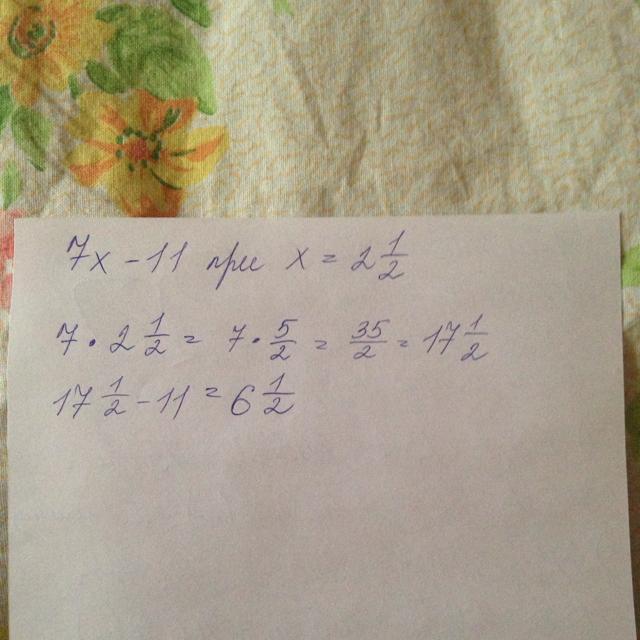 7x - 11 при x = 2 1/2
7 · 2 1/2 = 7 · 5/2 = 35/2 = 17 1/2
17 1/2 - 11 = 6 1/2